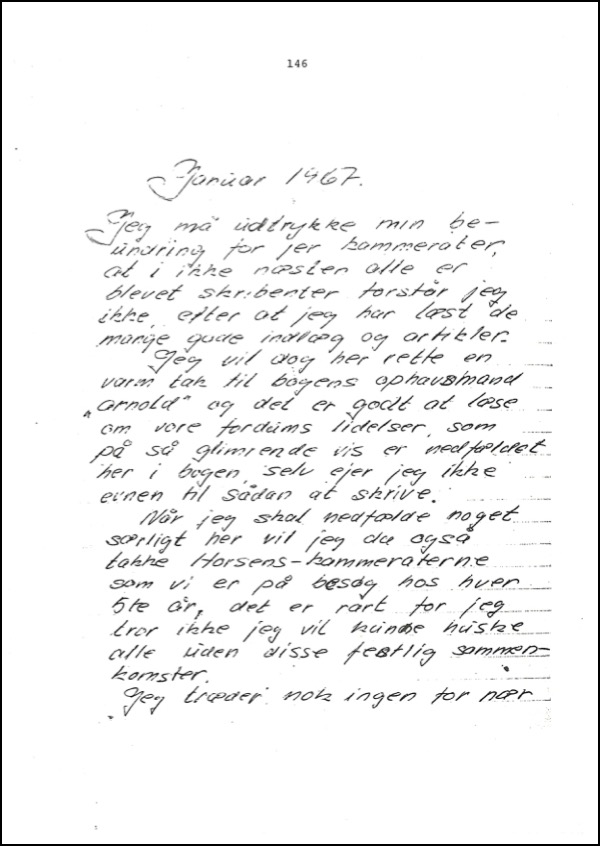 146
Januar 1967.
Jeg må udtrykke min be-
undring for jer kammerater,
at i ikke næsten alle er
blevet skribenter forstår jeg
ikke, efter at jeg har læst de
mange gode indlæg og artikler.
Jeg vil dog her rette en
varm tak til bogens ophavsmand
„Arnold" og det er godt at læse
om vore fordums lidelser, som
på så glimrende vis er nedfældet
her i bogen, selv ejer jeg ikke
evnen til sådan at skrive.
Når jeg skal nedfælde noget
særligt her vil jeg da også
takke Horsens-kammeraterne
som vi er på besøg hos hver
5te år, det er rart for jeg
tror ikke jeg vil kunne huske
alle uden disse festlig sammen-
komster.
Jeg træder nok ingen for nær